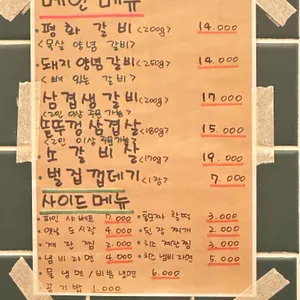 메인 메뉴
· 평화 갈비 <200g> 14.000
<목살 양념 갈비>
· 돼지양념갈비 <250g> 14.000
<뼈 있는 갈비>
· 삼겹생갈비 <200g> 17.000
<2인 이상 주문 가능>
· 뚜껑 삼겹살 <180g> 15.000
<2인 이상 주문가능>
· 소 갈비살 <170g> 19.000
· 벌집껍데기 <1장> 7.000
사이드메뉴
· 파인 샤베트 7.000
· 3.000
· 옛날 도시락 4.000
· 된장 찌개 2.000
· 계란 찜 2.000
· 치즈 계란찜 3.000
· 냄비라면 4.000
· 치즈 냄비라면 5.000
· 물냉면/비빔냉면 6.000
· 공기밥 1.000